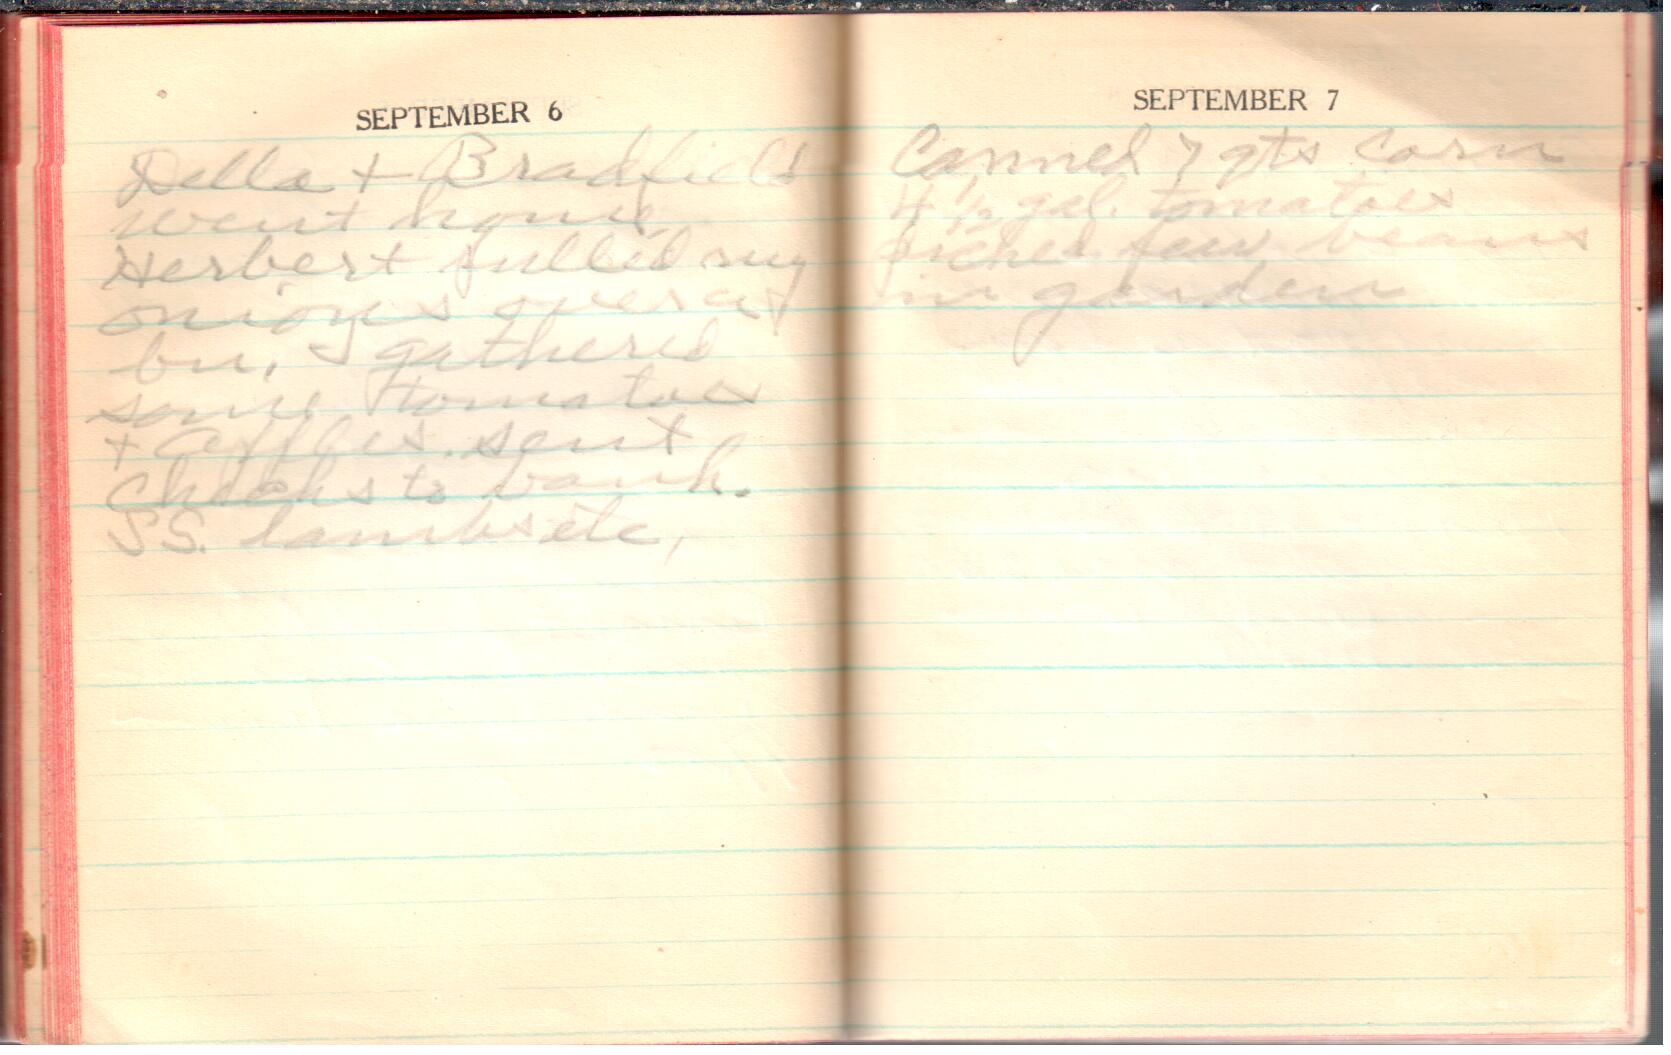 SEPTEMBER 6
Della + Bradfield
went home
Herbert pulled my
onions over a
bu, I gathered
some tomatoes
+ apples. sent
checks to bank.
SS. lambs etc,
SEPTEMBER 7
Canned 7 qts corn
4 1/2 gal. tomatoes
picked few beans
in garden